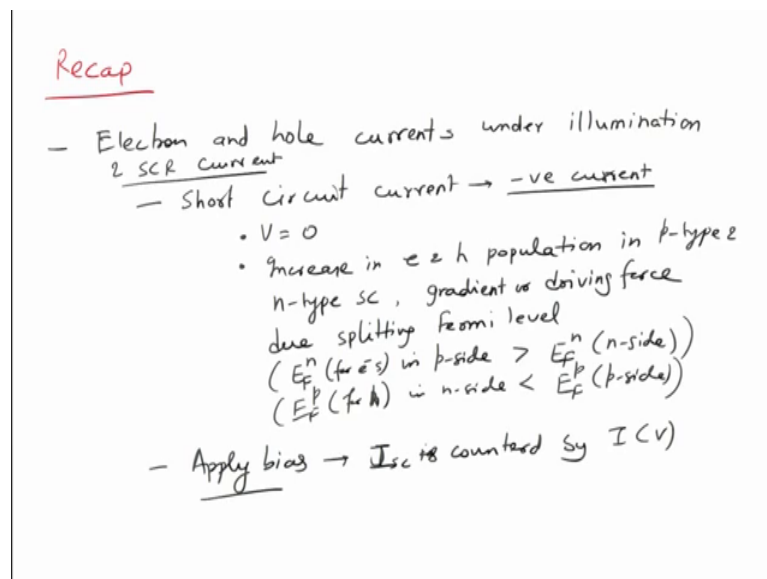 Recap
- Electron and hole currents under illumination
& SCR current
- Short circuit current → -ve current
• V = 0
• Increase in e & h population in p-type &
n-type sc, gradient or driving force
due splitting Fermi level
(E_F^n (for e's) in p-side > E_F^n (n-side))
(E_F^p (for h) in n-side < E_F^p (p-side))
- Apply bias → I_sc is countered by I(V)